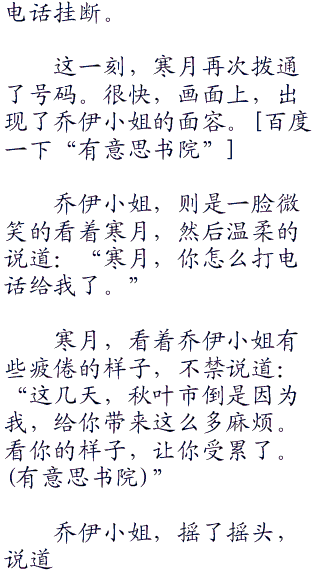 电话挂断。
这一刻，寒月再次拨通
了号码。很快，画面上，出
现了乔伊小姐的面容。[百度
一下“有意思书院”]
乔伊小姐，则是一脸微
笑的看着寒月，然后温柔的
说道：“寒月，你怎么打电
话给我了。”
寒月，看着乔伊小姐有
些疲倦的样子，不禁说道：
“这几天，秋叶市倒是因为
我，给你带来这么多麻烦。
看你的样子，让你受累了。
(有意思书院)”
乔伊小姐，摇了摇头，
说道